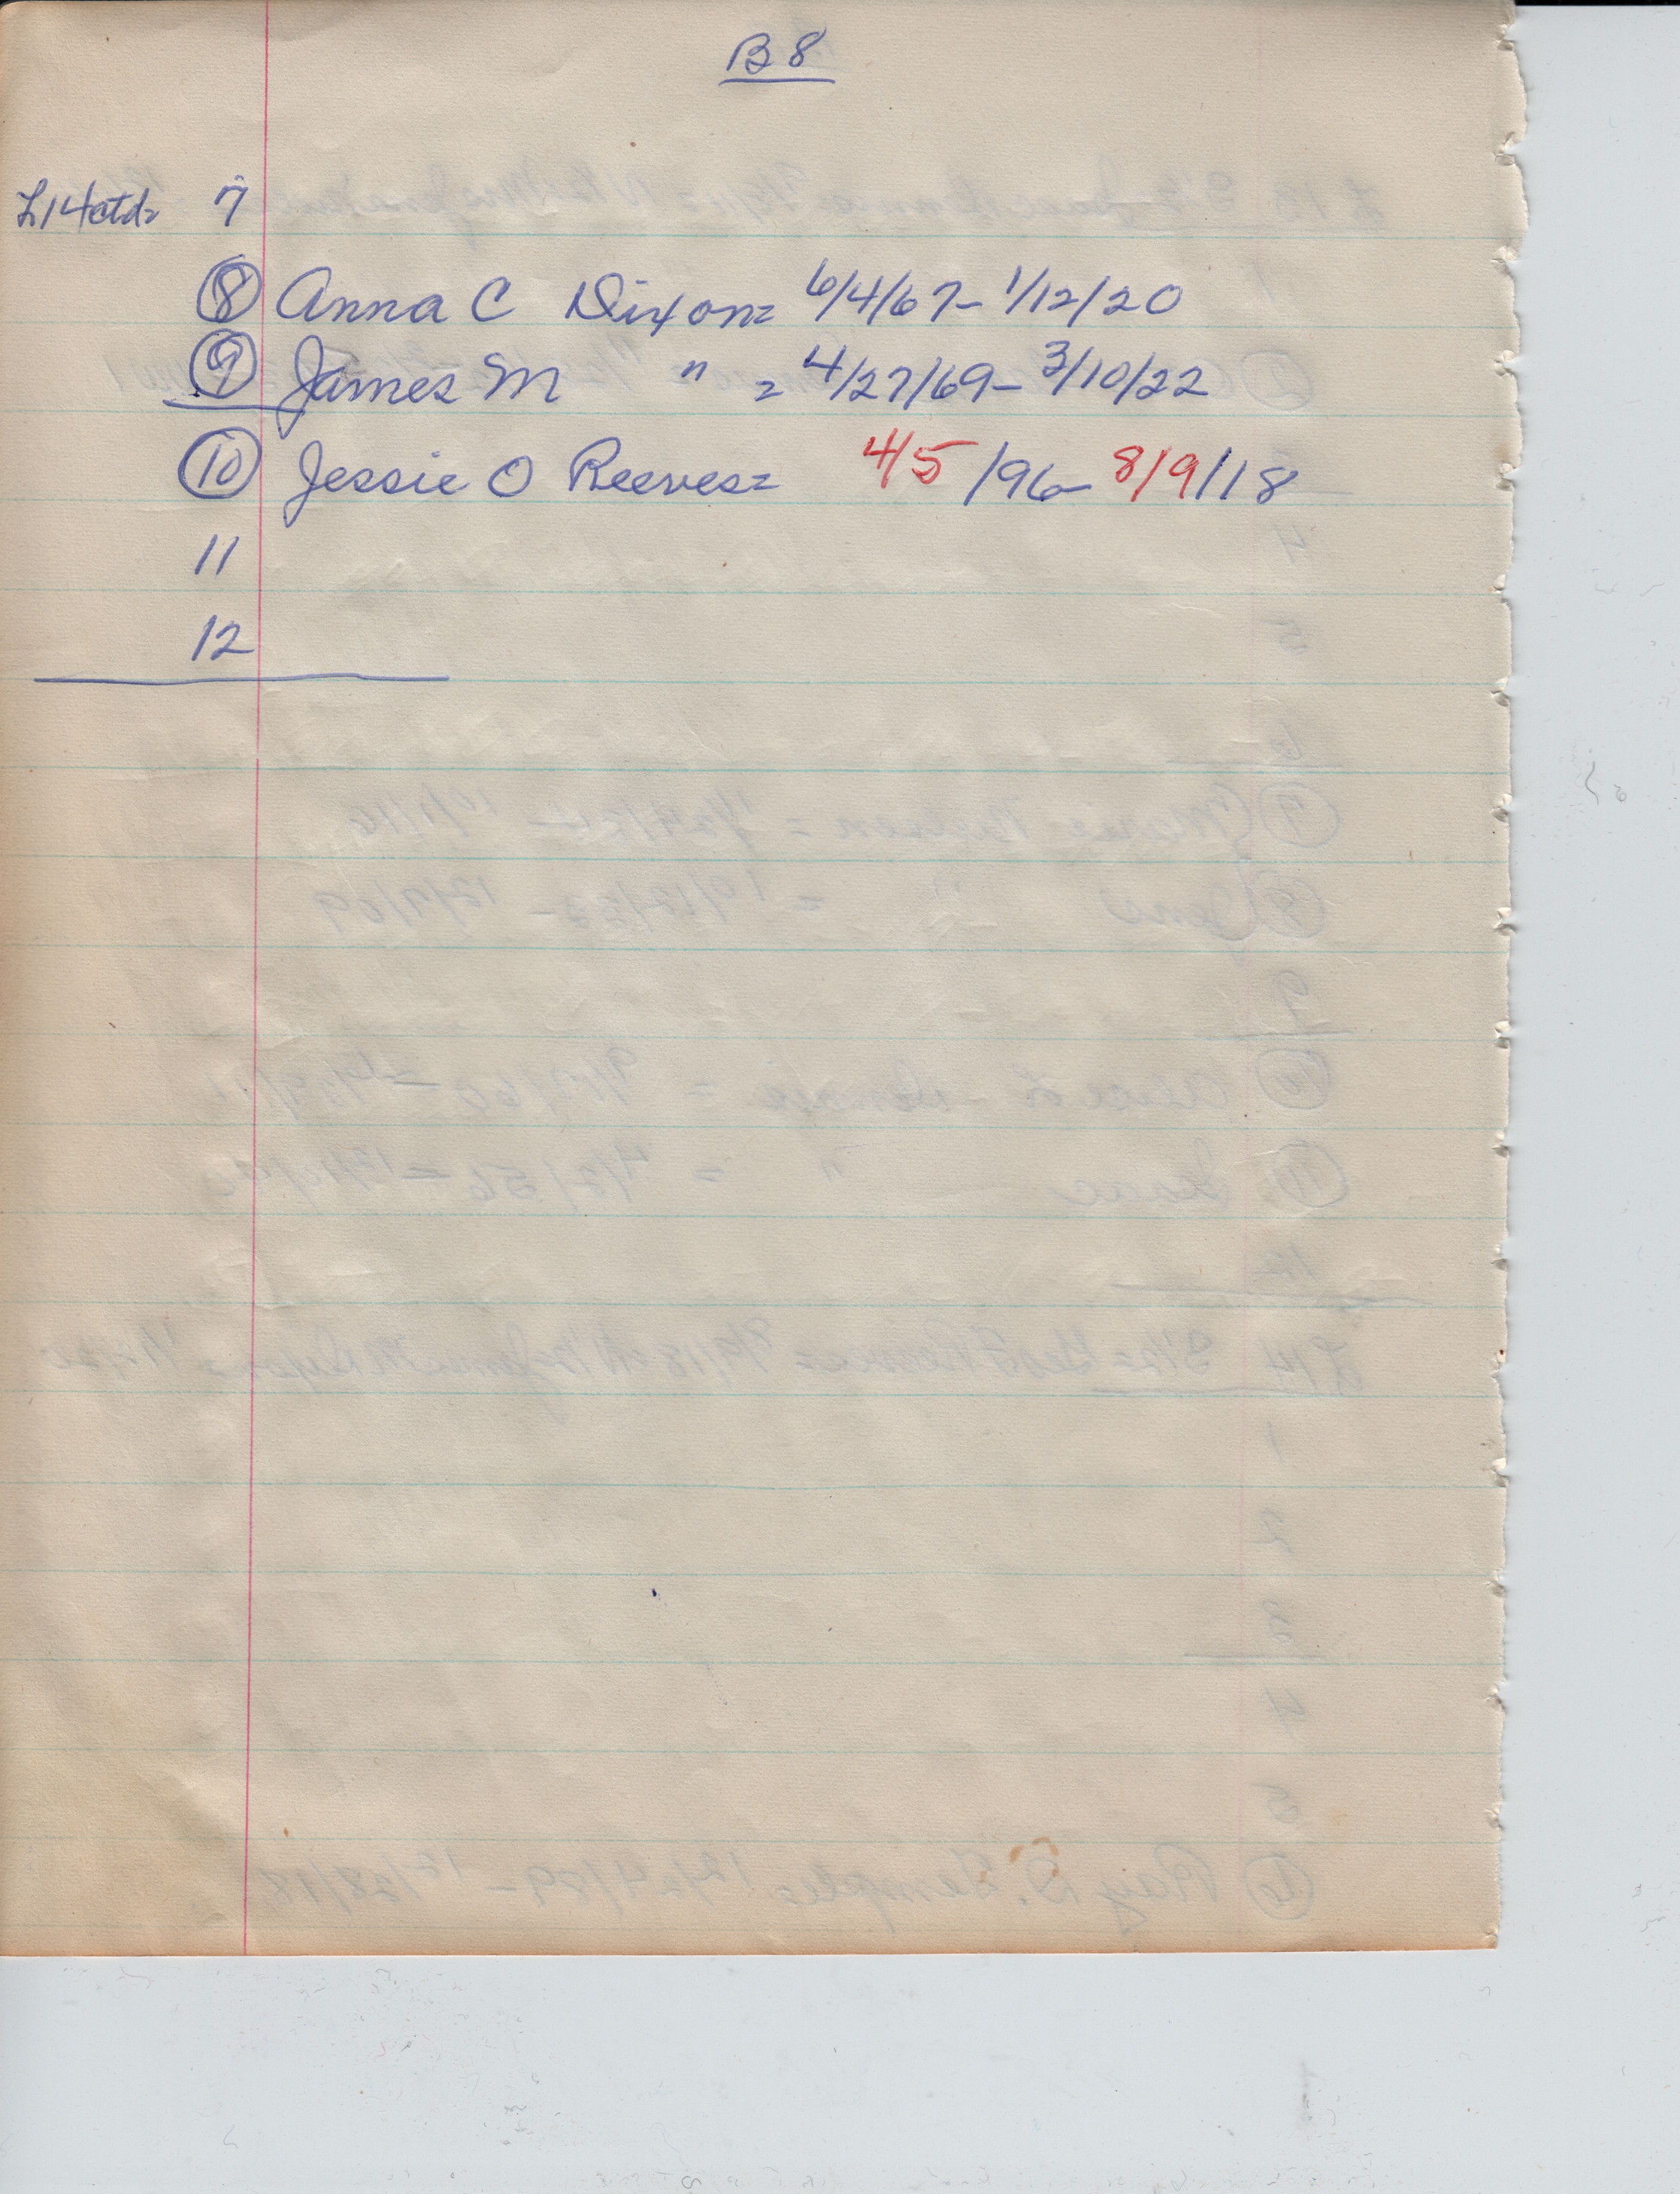 B 8
L14ctd= 7
8 Anna C Dixon= 6/4/67- 1/12/20
9 James M " = 4/27/69- 3/10/22
10 Jessie O Reeves= 4/5/96- 8/9/18
11
12